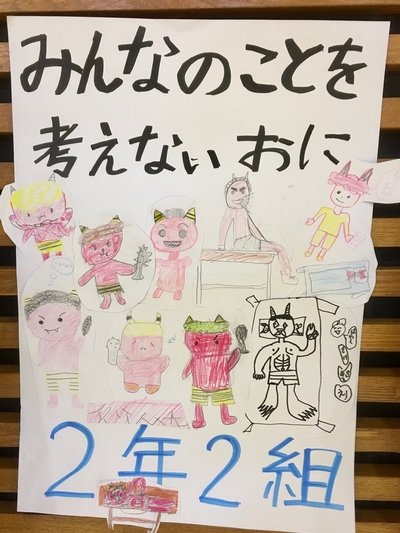 みんなのことを
考えないおに
2年2組